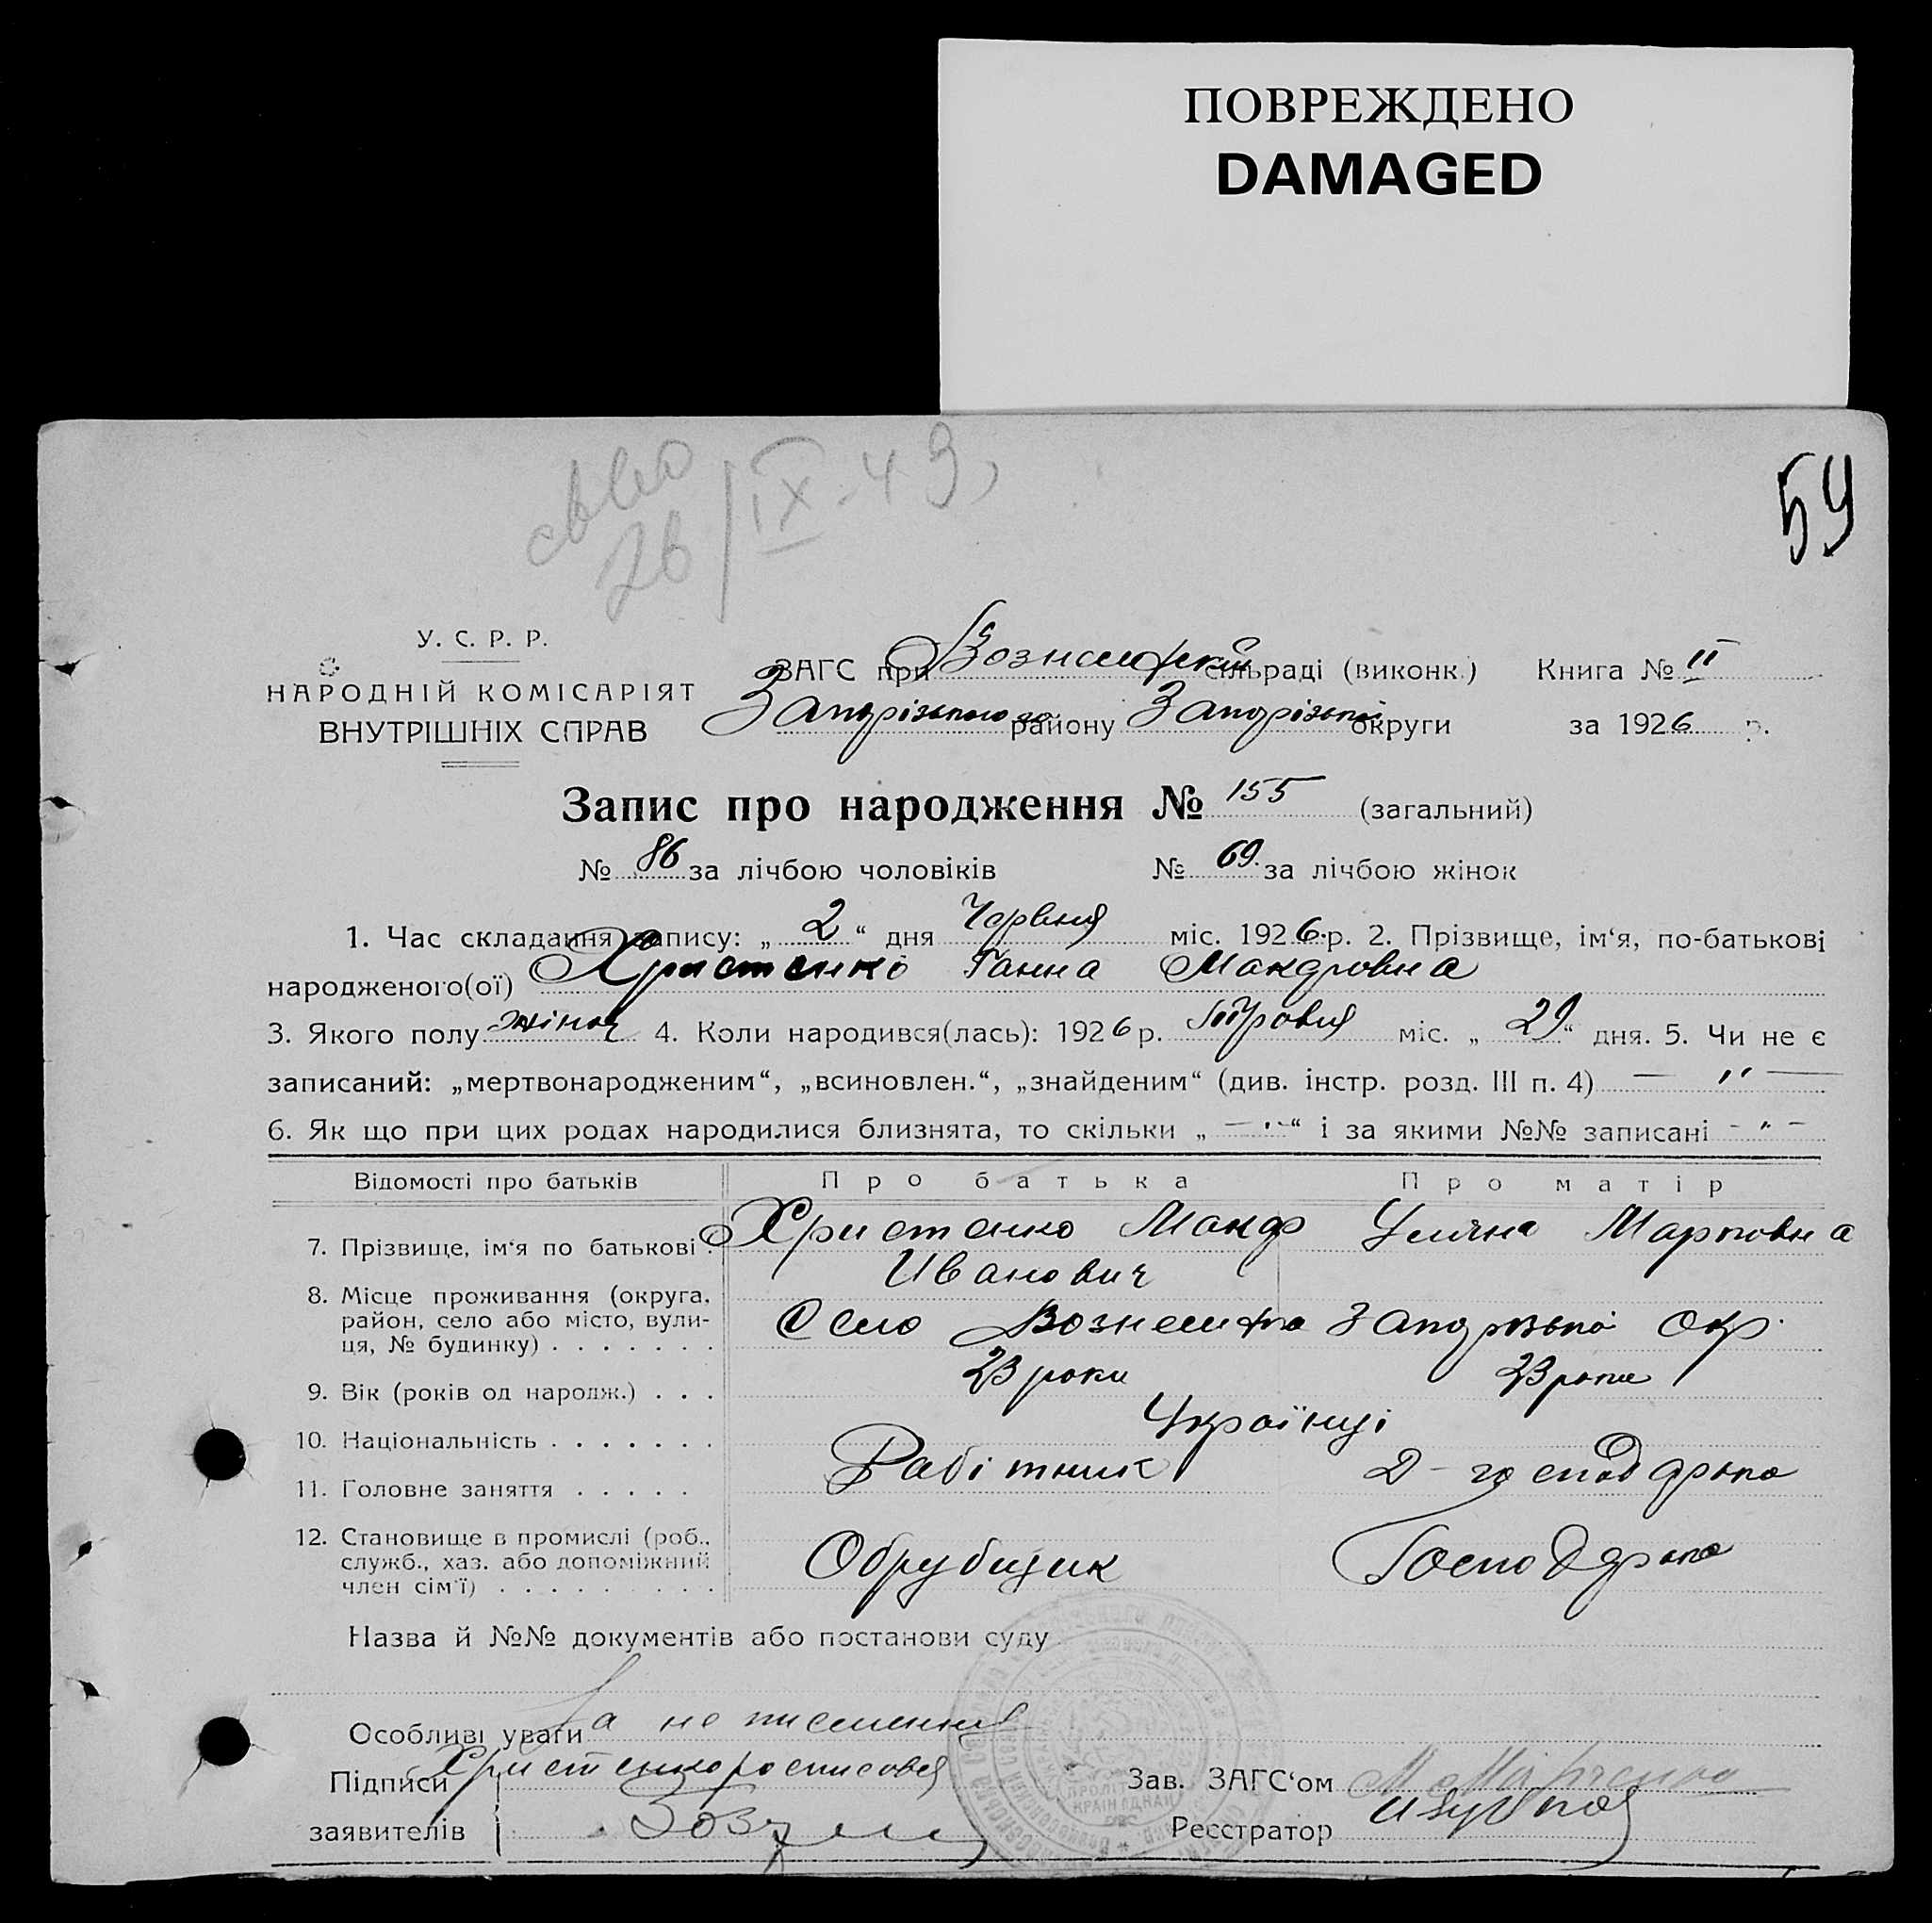 ПОВРЕЖДЕНО
DAMAGED
26/IX-49,
59
У. С. Р. Р.
НАРОДНІЙ КОМІСАРІЯТ
ВНУТРІШНІХ СПРАВ
ЗАГС при сільраді (виконк.) Книга № II
Запорізького району Запорізької округи за 1926 р.
Запис про народження № 155 (загальний)
№ 86 за лічбою чоловіків № 69. за лічбою жінок
1. Час складання запису: „ 2 “ дня Червня міс. 1926 р. 2. Прізвище, ім‘я, по-батькові
народженого(ої) Христенко Ганна Макаровна
3. Якого полу жіноч 4. Коли народився(лась): 1926 р. міс. „ 29 “ дня. 5. Чи не є
записаний: „мертвонародженим“, „всиновлен.“, „знайденим“ (див. інстр. розд. III п. 4) — " —
6. Як що при цих родах народилися близнята, то скільки „ — " — “ і за якими №№ записані - " -
Відомості про батьків Про батька Про матір
7. Прізвище, ім‘я по батькові . Христенко Макар Уляна Марковна
Иванович
8. Місце проживання (округа, район, село або місто, вули-
ця, № будинку) . . . . . . . Село Вознесенка Запорізької Окр.
9. Вік (років од народж.) . . . 23 роки 23 роки
10. Національність . . . . . . . Українці
11. Головне заняття . . . . . Рабітник Д-господарка
12. Становище в промислі (роб., служб., хаз. або допоміжний
член сім‘ї) . . . . . . . . . Обрубщик Господарка
Назва й №№ документів або постанови суду
Особливі уваги За не писменния
Підписи Христенко росписовся
заявителів
Зав. ЗАГС‘ом
Реєстратор